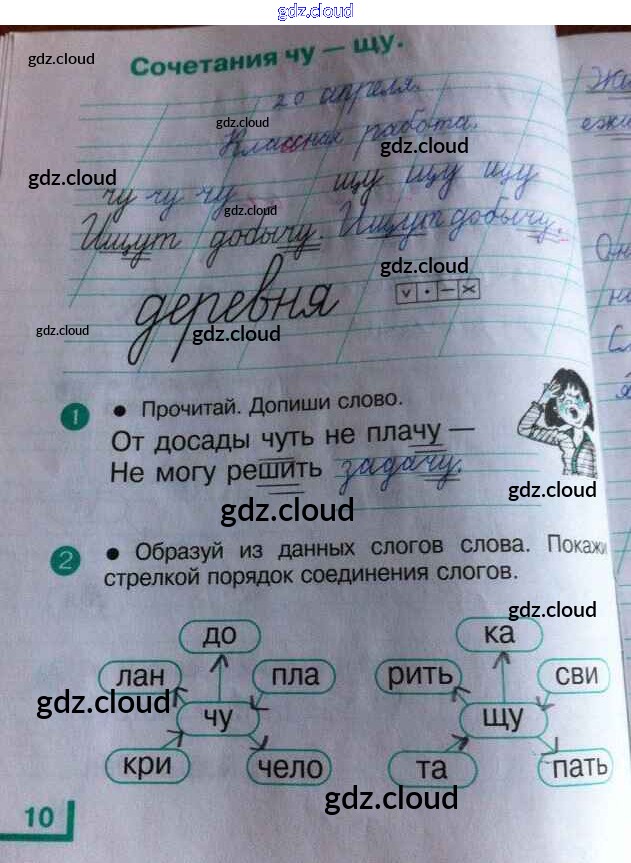 gdz.cloud
gdz.cloud
Сочетания чу — щу.
20 апреля.
gdz.cloud
Классная работа.
gdz.cloud
gdz.cloud
чу чу чу щу щу щу
gdz.cloud
Ищут добычу. Ищут добычу.
gdz.cloud
деревня
gdz.cloud
gdz.cloud
1 • Прочитай. Допиши слово.
От досады чуть не плачу —
Не могу решить задачу.
gdz.cloud
gdz.cloud
2 • Образуй из данных слогов слова. Покажи
стрелкой порядок соединения слогов.
gdz.cloud
до ка
лан пла рить сви
gdz.cloud
чу щу
кри чело та пать
gdz.cloud
10